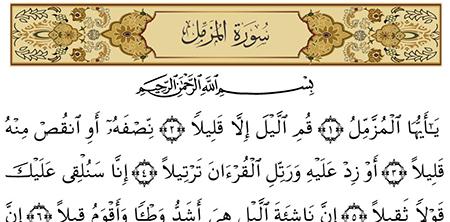 سورة المزمل
بسم الله الرحمن الرحيم
يَـٰٓأَيُّهَا ٱلْمُزَّمِّلُ ﴿١﴾ قُمِ ٱلَّيْلَ إِلَّا قَلِيلًا ﴿٢﴾ نِّصْفَهُۥٓ أَوِ ٱنقُصْ مِنْهُ
قَلِيلًا ﴿٣﴾ أَوْ زِدْ عَلَيْهِ وَرَتِّلِ ٱلْقُرْءَانَ تَرْتِيلًا ﴿٤﴾ إِنَّا سَنُلْقِى عَلَيْكَ
قَوْلًا ثَقِيلًا ﴿٥﴾ إِنَّ نَاشِئَةَ ٱلَّيْلِ هِىَ أَشَدُّ وَطْـًٔا وَأَقْوَمُ قِيلًا ﴿٦﴾ إِنَّ